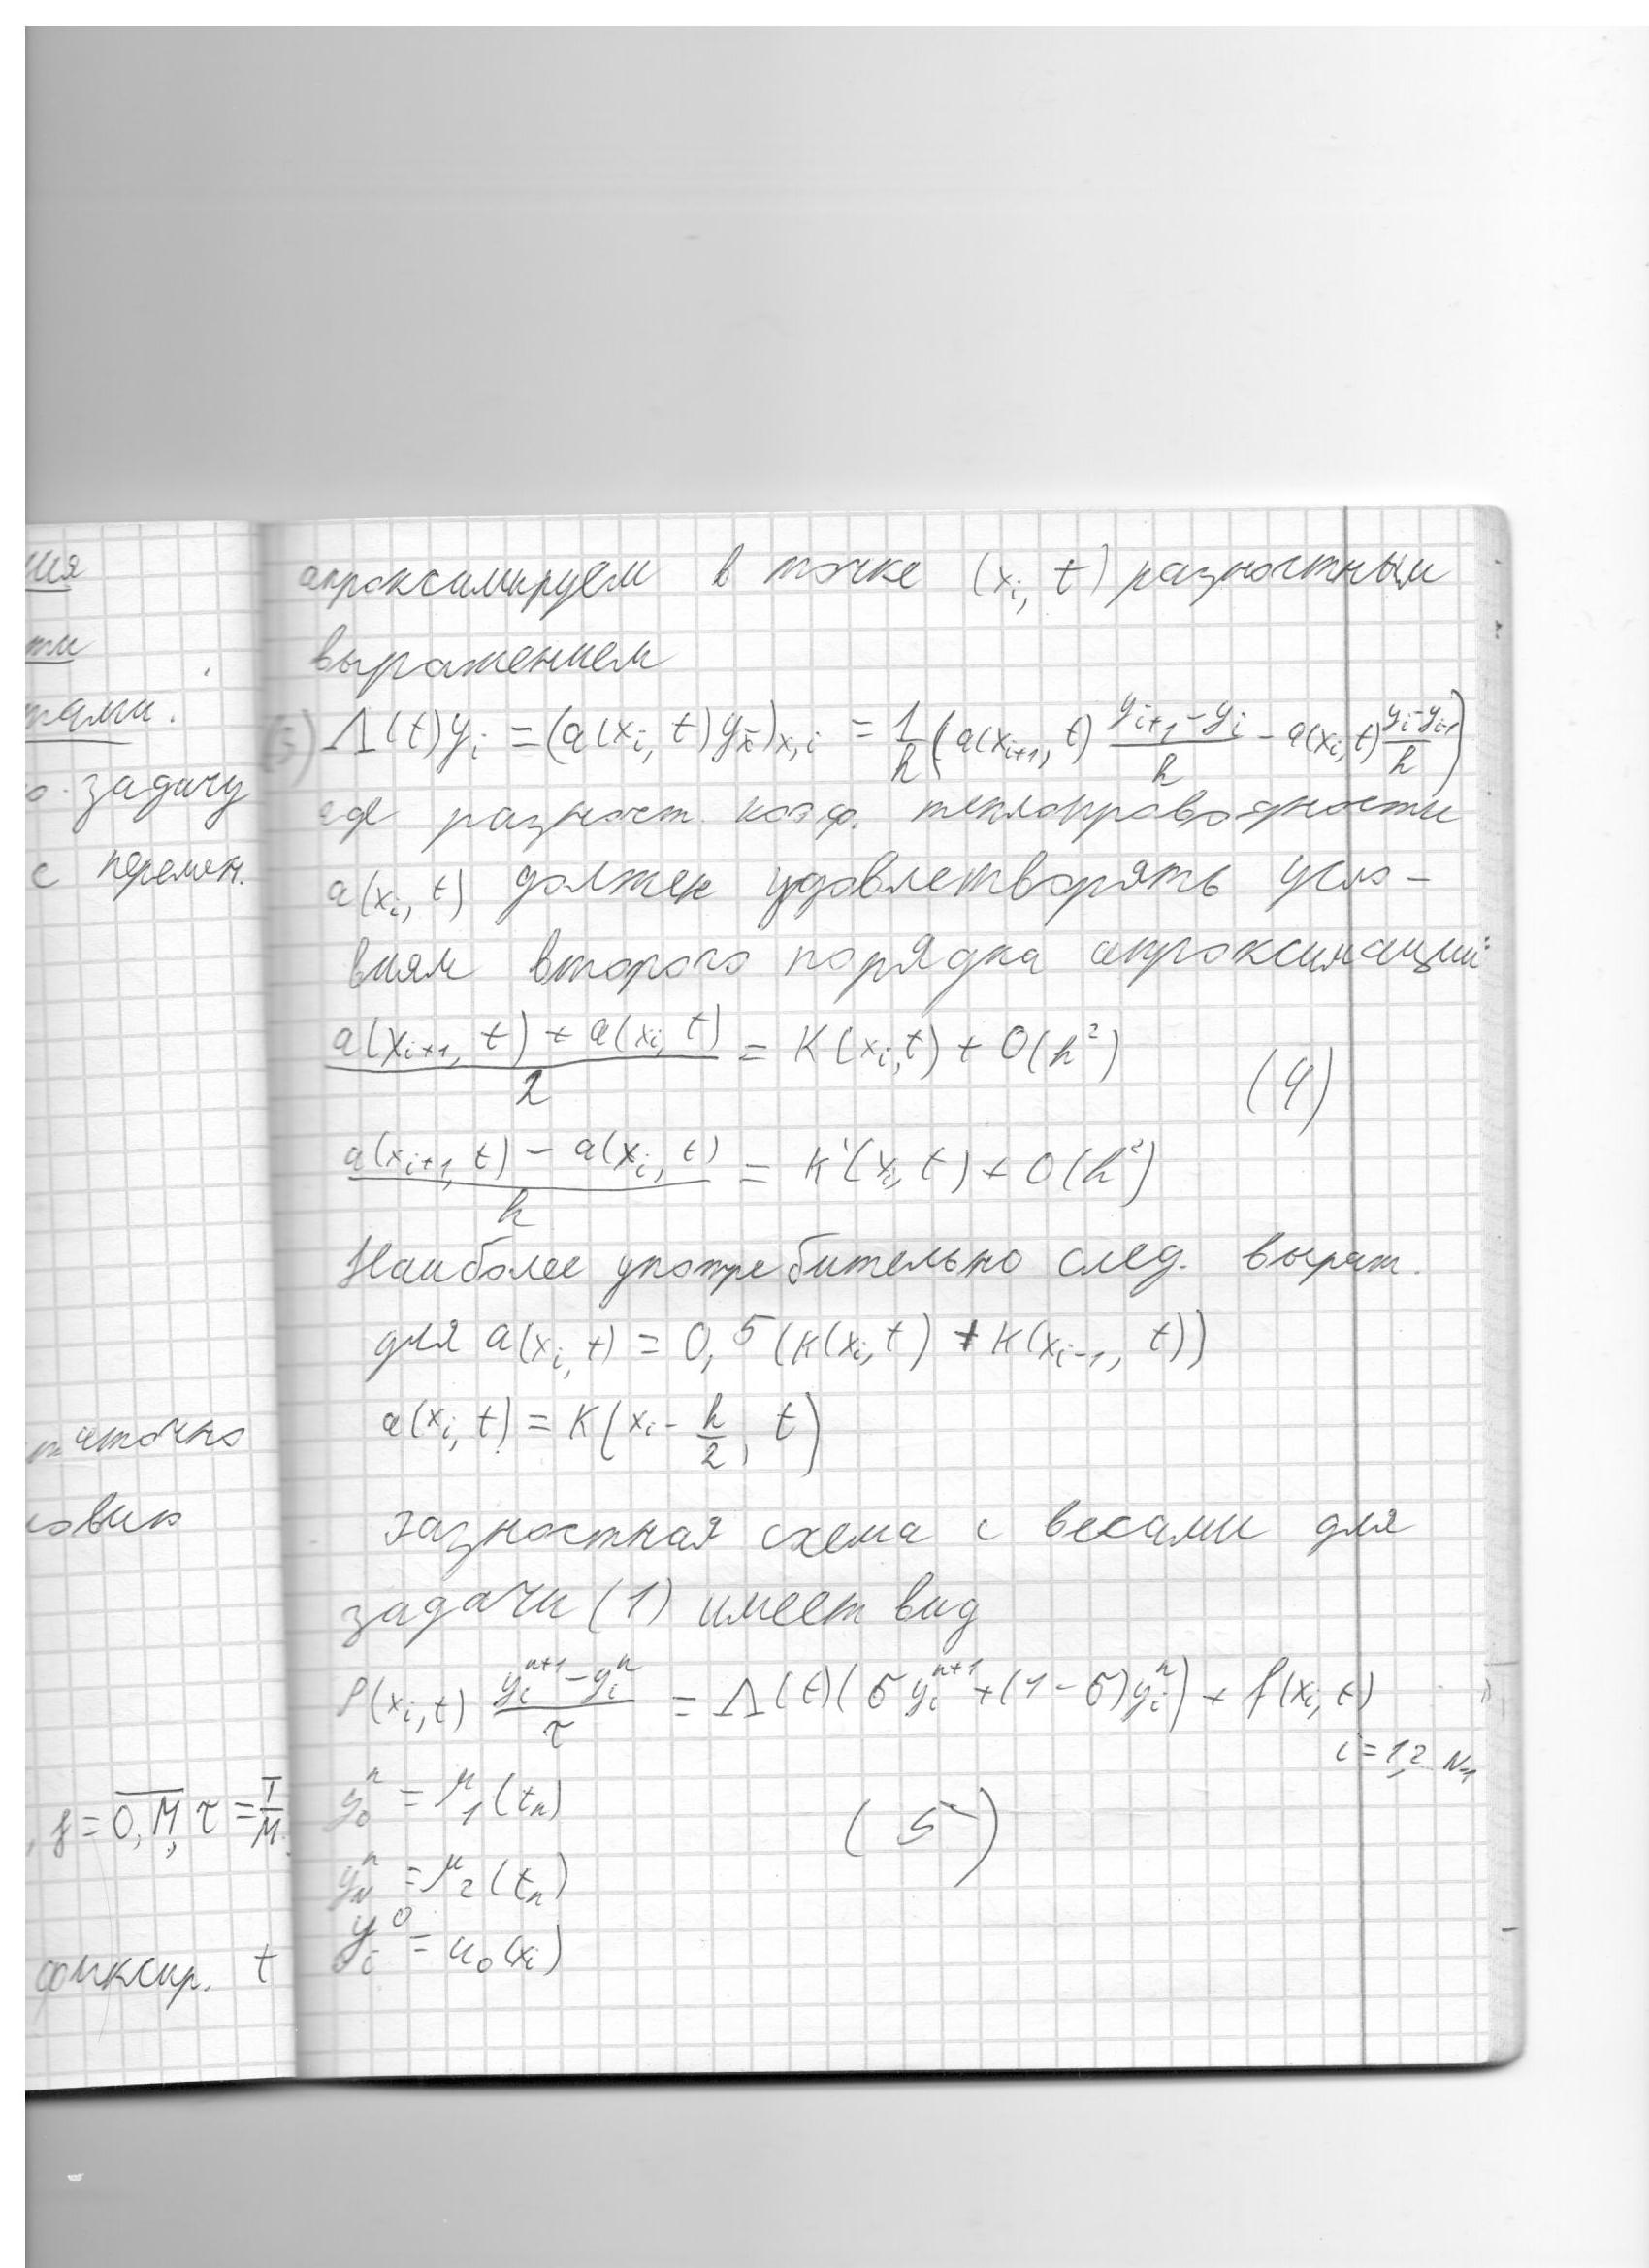 ния
ти
тами.
задачу
с перемен.
аточно
овию
, j = \overline{0, M}, τ = T/M.
фиксир. t
апроксимируем в точке (x_i, t) разностным
выражением
(3) Λ(t)y_i = (a(x_i, t)y_{\bar{x}})_{x,i} = 1/h (a(x_{i+1}, t) (y_{i+1} - y_i)/h - a(x_i, t) (y_i - y_{i-1})/h)
где разност. коэф. теплопроводности
a(x_i, t) должен удовлетворять усло-
виям второго порядка апроксимации:
(a(x_{i+1}, t) + a(x_i, t))/2 = K(x_i, t) + O(h²)
(4)
(a(x_{i+1}, t) - a(x_i, t))/h = K'(x_i, t) + O(h²)
Наиболее употребительно след. выраж.
для a(x_i, t) = 0,5 (K(x_i, t) + K(x_{i-1}, t))
a(x_i, t) = K(x_i - h/2, t)
Разностная схема с весами для
задачи (1) имеет вид
ρ(x_i, t) (y_i^{n+1} - y_i^n)/τ = Λ(t)(σ y_i^{n+1} + (1 - σ)y_i^n) + f(x_i, t)
i = 1,2 N-1
y_0^n = μ_1(t_n)
(5)
y_N^n = μ_2(t_n)
y_i^0 = u_0(x_i)